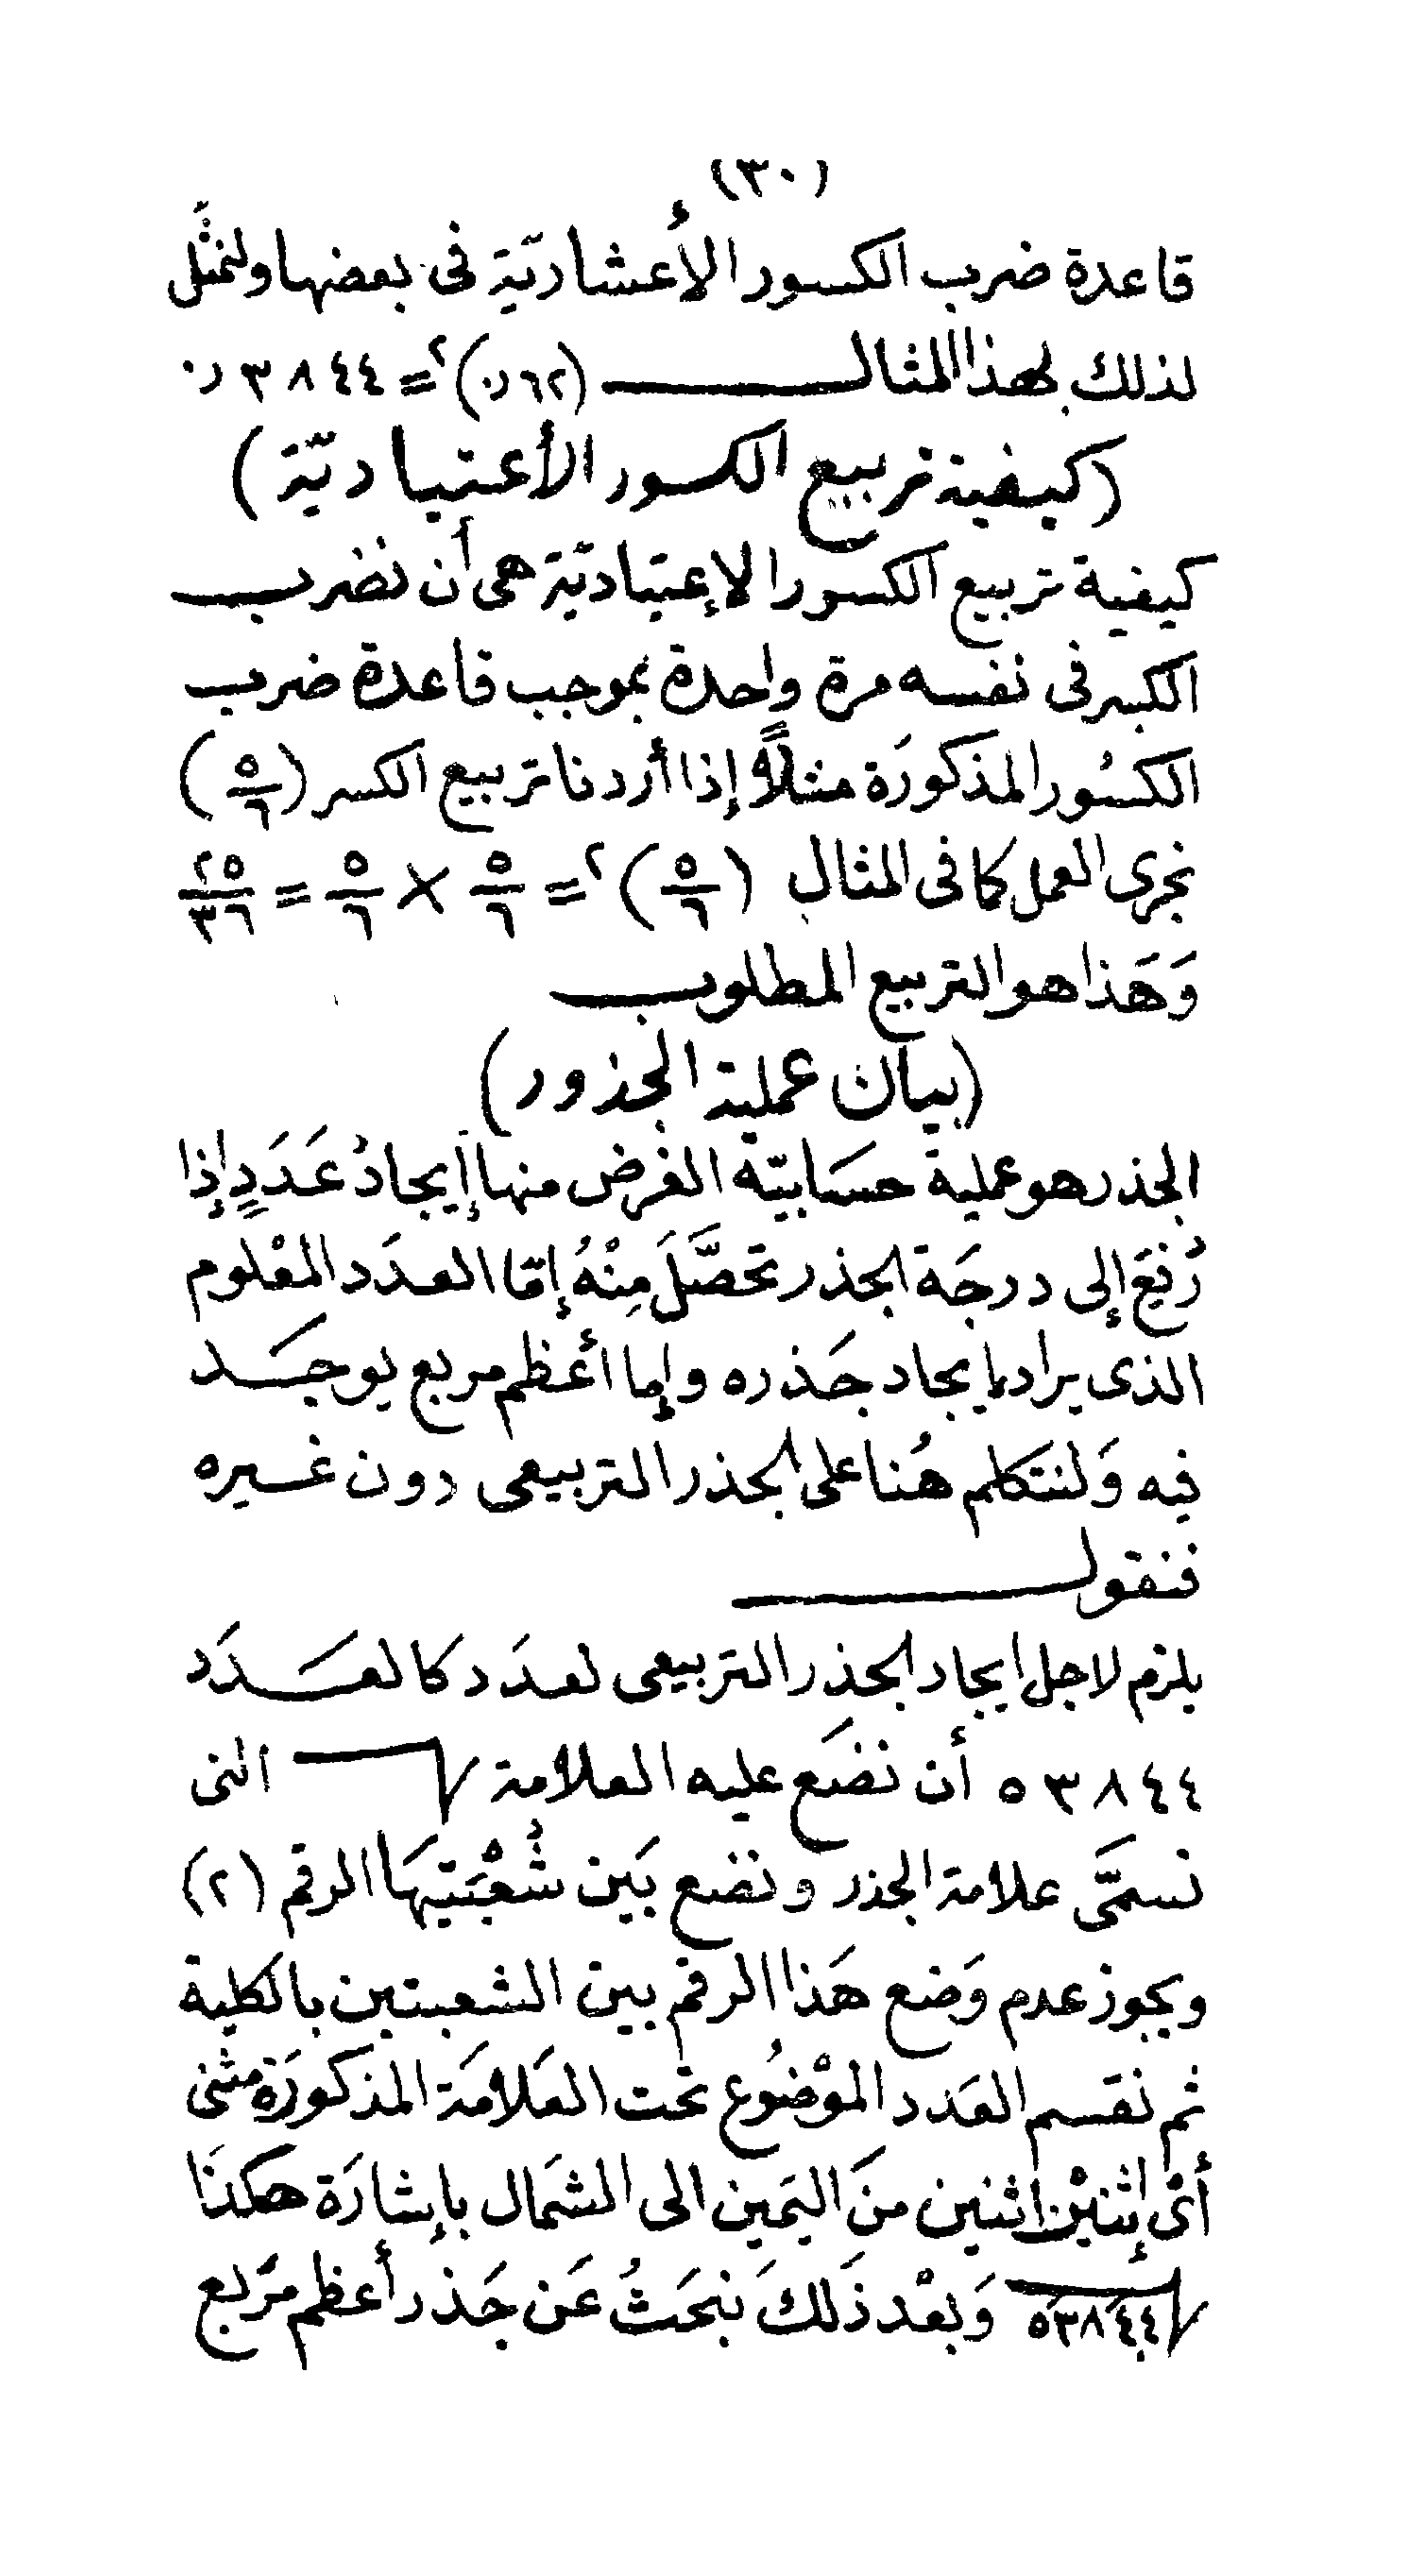 (٣٠)
قاعدة ضرب الكسور الأعشاريّة فى بعضها ولنمثّل
لذلك بهذا المثال (٠٫٦٢)٢ = ٠٫٣٨٤٤
(كيفية تربيع الكسور الأعتياديّة)
كيفية تربيع الكسور الإعتياديّة هى أن نضرب
الكسر فى نفسه مرة واحدة بموجب قاعدة ضرب
الكسُور المذكورَة مثلاً إذا أردنا تربيع الكسر (٥/٦)
نجرى العمل كما فى المثال (٥/٦)٢ = ٥/٦ × ٥/٦ = ٢٥/٣٦
وَهَذا هو التربيع المطلوب
(بيان عملية الجذور)
الجذر هو عملية حسَابيّة الغرض منها إيجادُ عَدَدٍ إذا
رُفِعَ إلى درجَة الجذر تحصَّلَ مِنْهُ إمّا العدَد المعْلوم
الذى يراد إيجاد جَذره وإما أعظم مربع يوجَد
فيه وَلنتكلم هُنا على الجذر التربيعى دون غيره
فنقول
يلزم لاجل ايجاد الجذر التربيعى لعدَد كالعَدَد
٥٣٨٤٤ أن نضَع عليه العلامة √ التى
نسمَّى علامة الجذر ونضع بَين شُعْبَتيهَا الرقم (٢)
ويجوز عدم وَضع هَذا الرقم بين الشعبتين بالكلية
ثم نقسم العَدد الموْضُوع تحت العَلامَة المذكورَة مثنى
أىْ إثنيْن اثنين منَ اليَمين الى الشمَال بإشارَة هكذَا
√٥٣٨٤٤ وَبعْد ذَلكَ نبحَثُ عَن جَذر أعظم مرَبع